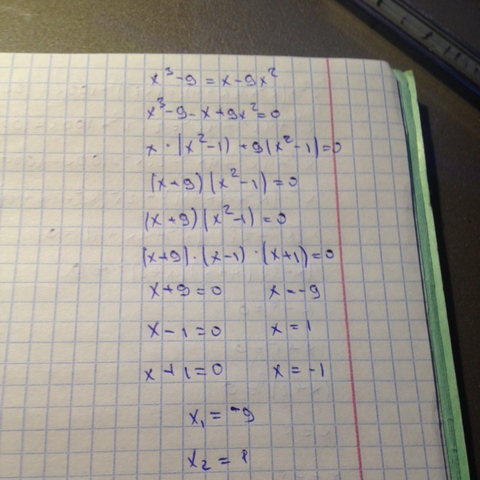 x³-9 = x-9x²
x³-9-x+9x²=0
x·(x²-1)+9(x²-1)=0
(x+9)(x²-1)=0
(x+9)(x²-1)=0
(x+9)·(x-1)·(x+1)=0
x+9=0 x=-9
x-1=0 x=1
x+1=0 x=-1
x₁=-9
x₂=1